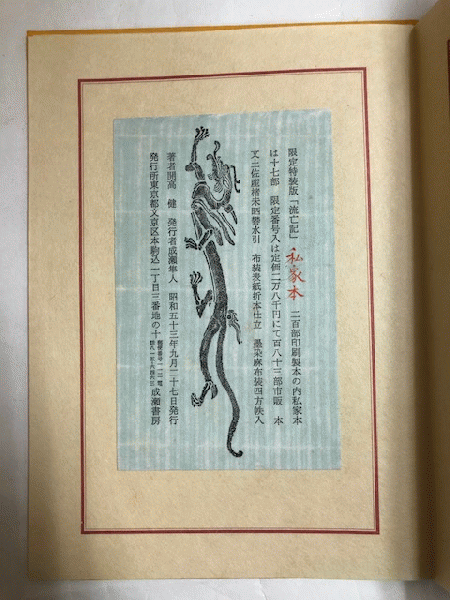 限定特装版「流亡記」 私家本 二百部印刷製本の内私家本
は十七部 限定番号入は定価二万八千円にて百八十三部市販 本
文土佐産楮未晒礬水引 布装表紙折本仕立 墨染麻布装四方帙入
著者開高 健 発行者成瀬隼人 昭和五十三年九月二十七日発行
発行所東京都文京区本駒込一丁目三番地の十 郵便番号一一三 成瀬書房